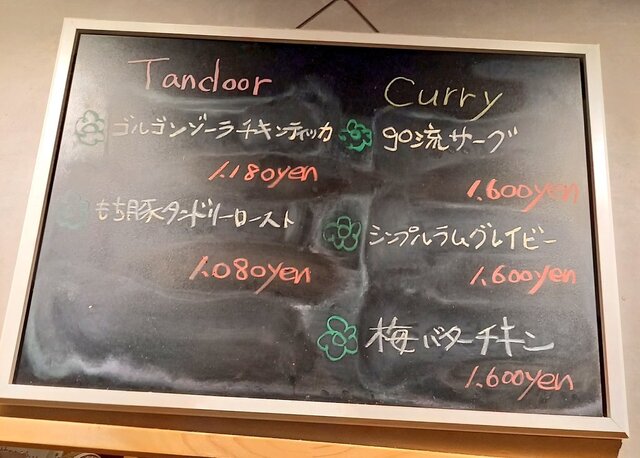 Tandoor
ゴルゴンゾーラチキンティッカ
1.180yen
もち豚タンドリーロースト
1.080yen
Curry
90流サーグ
1.600yen
シンプルラムグレイビー
1.600yen
梅バターチキン
1.600yen